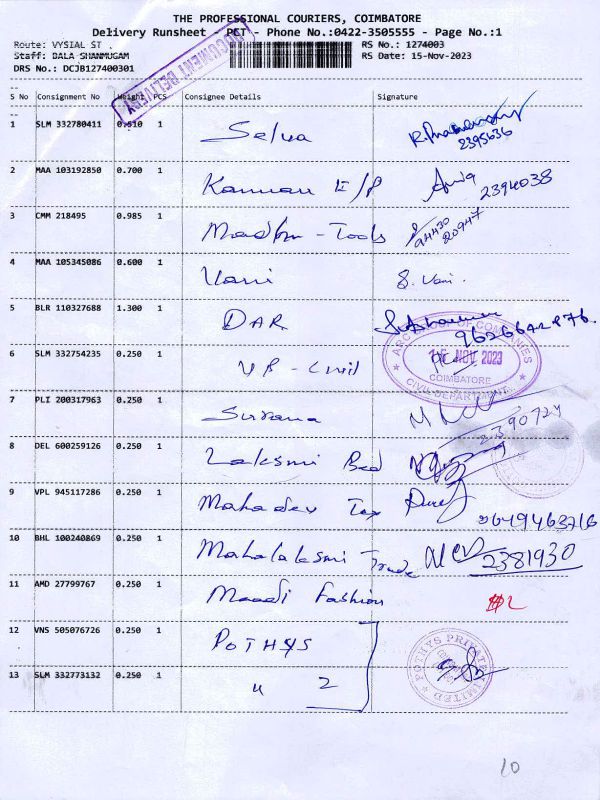 THE PROFESSIONAL COURIERS, COIMBATORE
Delivery Runsheet - PCT - Phone No.:0422-3505555 - Page No.:1
Route: VYSIAL ST . RS No.: 1274003
Staff: BALA SHANMUGAM RS Date: 15-Nov-2023
DRS No.: DCJB127400301
DOCUMENT DELIVERY
S No Consignment No Weight PCS Consignee Details Signature
1 SLM 332780411 0.510 1 Selva 2395636
2 MAA 103192850 0.700 1 Kannan E/P 2394038
3 CMM 218495 0.985 1 Madhu - Tools 94430 20947
4 MAA 105345086 0.600 1 Vani S. Vani.
5 BLR 110327688 1.300 1 DAR 9626642876.
6 SLM 332754235 0.250 1 VB - Civil
15 NOV 2023
COIMBATORE
CIVIL DEPARTMENT
7 PLI 200317963 0.250 1 Surana 2390724
8 DEL 600259126 0.250 1 Laksmi Bed
9 VPL 945117286 0.250 1 Mahadev Tex
10 BHL 100240869 0.250 1 Mahalaksmi Trade 2381930
11 AMD 27799767 0.250 1 Maadi Fashion
12 VNS 505076726 0.250 1 POTHYS
POTHYS PRIVATE LIMITED
13 SLM 332773132 0.250 1 " 2
10